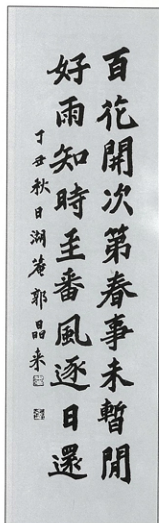 百花開次第春事未暫閒
好雨知時至番風逐日還
丁丑秋日湖菴郭晶来